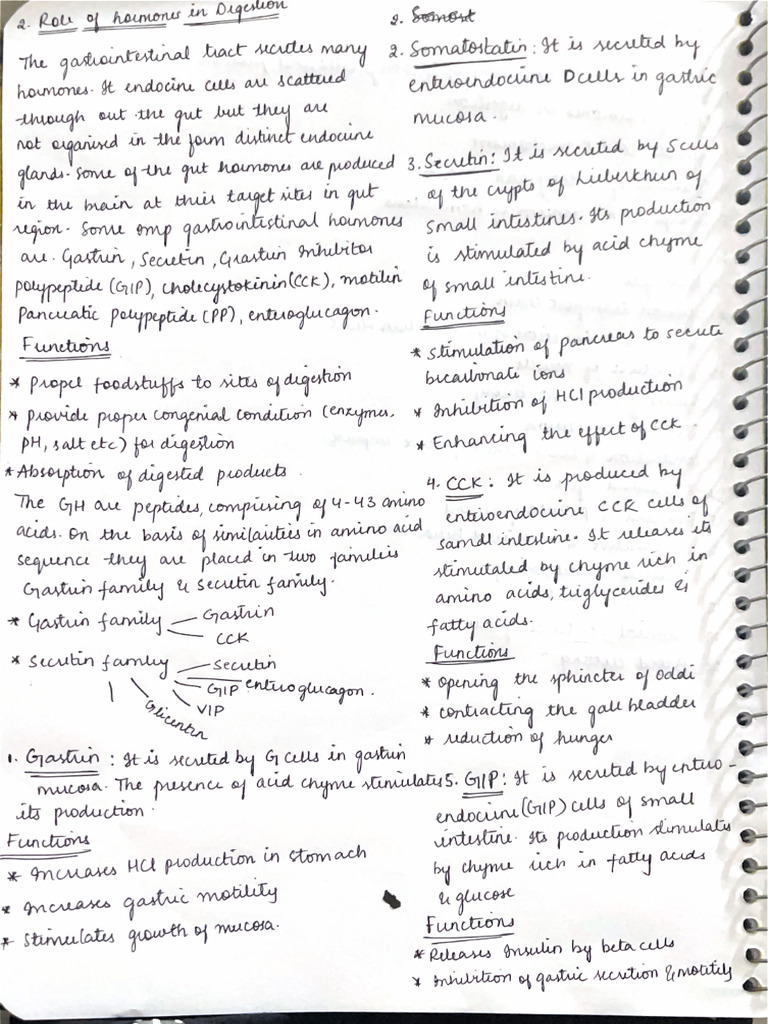 2. Role of hormones in Digestion
The gastrointestinal tract secretes many
hormones. It endocrine cells are scattered
through out the gut but they are
not organised in the form distinct endocrine
glands. Some of the gut hormones are produced
in the brain at their target sites in gut
region. Some omp gastrointestinal hormones
are. Gastrin, Secretin, Grastrin Inhibitor
polypeptide (GIP), cholecystokinin (CCK), motilin
Pancreatic Polypeptide (PP), enteroglucagon.
Functions
* Propel foodstuffs to sites of digestion
* provide proper congenial condition (enzymes,
PH, salt etc) for digestion
* Absorption of digested products.
The GH are peptides, comprising of 4-43 amino
acids. On the basis of similarities in amino acid
sequence they are placed in two families
Gastrin family & Secretin family.
* Gastrin family
Gastrin
CCK
* Secretin family
Secretin
GIP enteroglucagon.
VIP
Glicentin
1. Gastrin : It is secreted by G cells in gastrin
mucosa. The presence of acid chyme stimulates
its production.
Functions
* Increases HCl production in stomach
* Increases gastric motility
* Stimulates growth of mucosa.
2. Somost
2. Somatostatin : It is secreted by
enteroendocrine D cells in gastric
mucosa.
3. Secretin : It is secreted by S cells
of the crypts of Lieberkhun of
Small intestines. Its production
is stimulated by acid chyme
of small intestine.
Functions
* Stimulation of pancreas to secrete
bicarbonate ions
* Inhibition of HCl production
* Enhancing the effect of CCK.
4. CCK : It is produced by
enteroendocrine CCK cells of
samdl intestine. It releases its
stimutaled by chyme rich in
amino acids, triglycerides &
fatty acids.
Functions
* opening the sphincter of oddi
* contracting the gale bladder
* reduction of hunger
5. GIP : It is secreted by entero-
endocrine (GIP) cells of small
intestine. Its production stimulates
by chyme rich in fatty acids
& glucose
Functions
* Releases Insulin by beta cells
* Inhibition of gastric secretion & motility